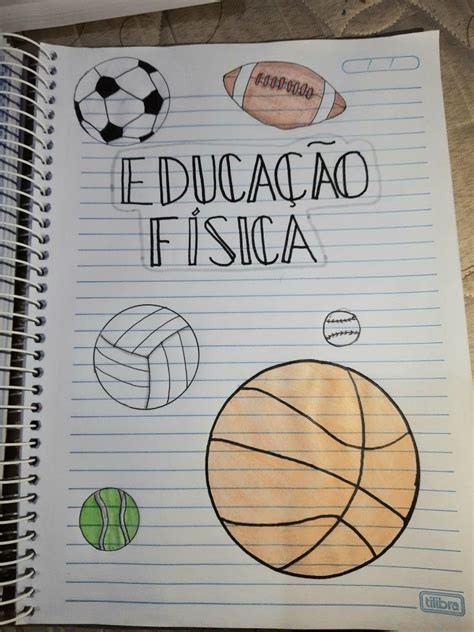 EDUCAÇÃO
FÍSICA
tilibra